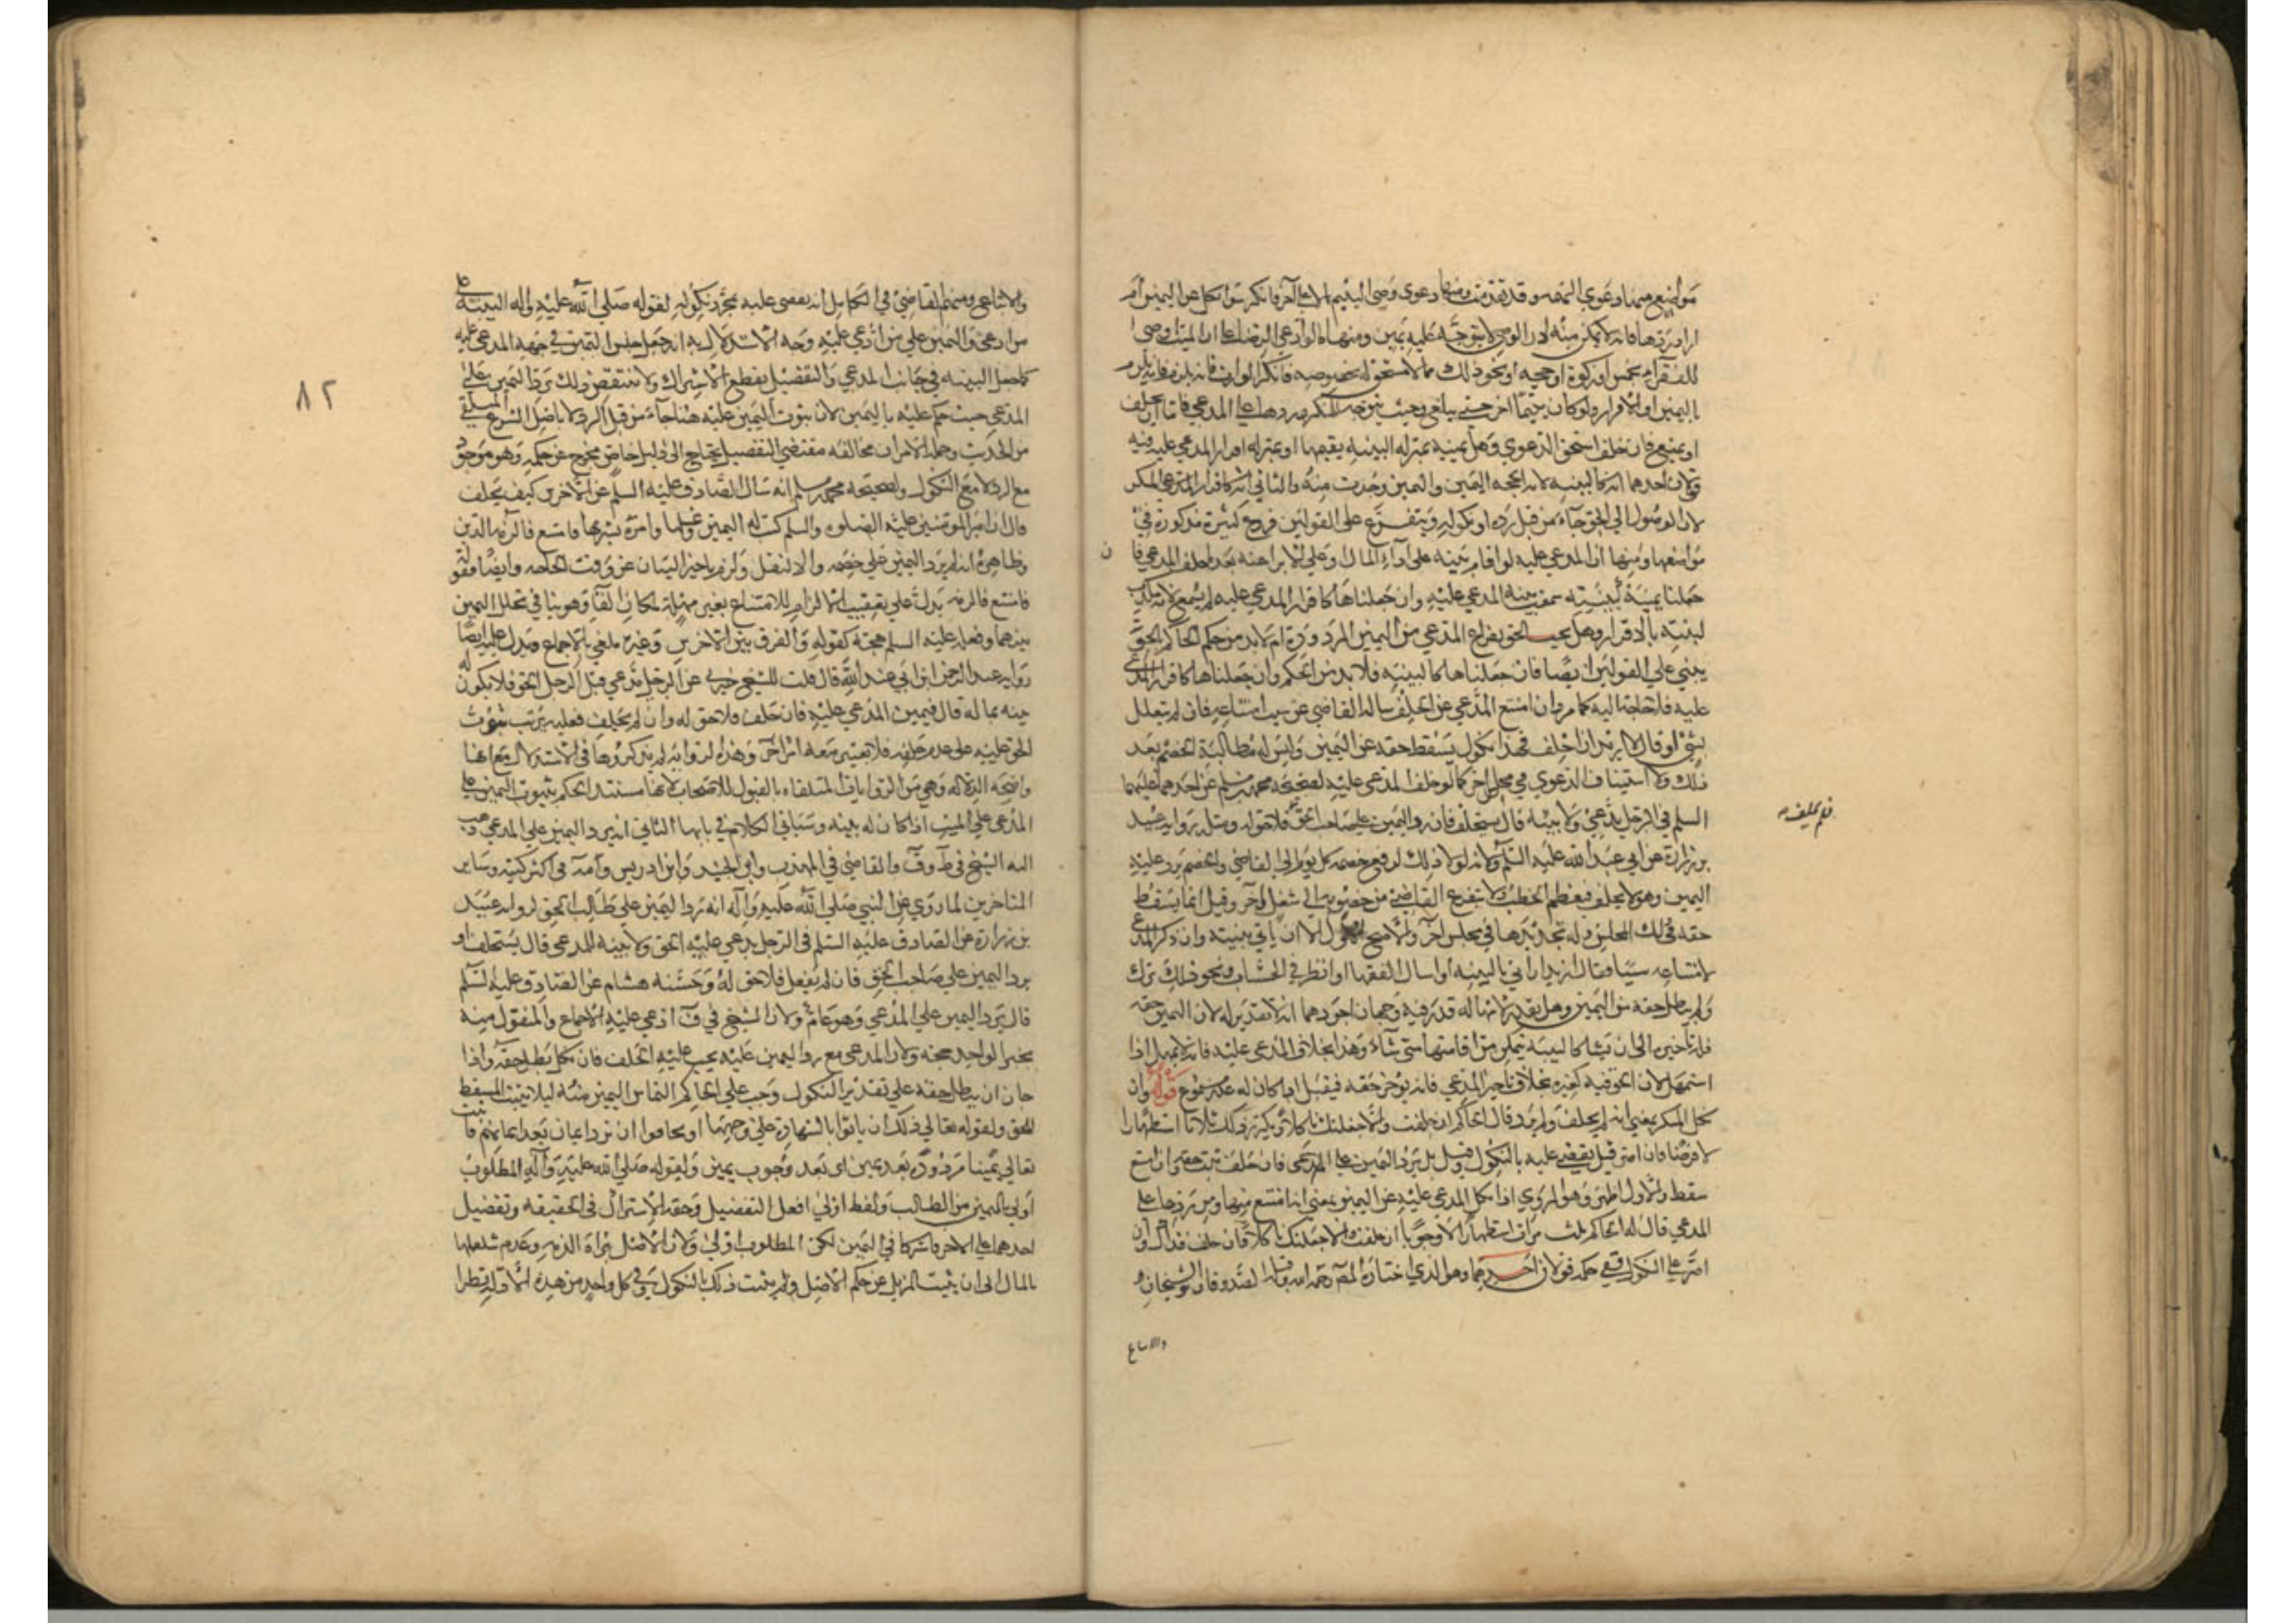 مواضع منها دعوى التهمه وقد تقدمت ومنها دعوى وصي اليتيم مالا على آخر فانكر سوا نكل عن اليمين ام
اراد ردها فانه لا يمكن منه لان الوصي لا يتوجه عليه يمين ومنها ما لو ادعى الوصي على الوارث ان الميت اوصى
للفقرا بخمس او زكوة او حجه او نحو ذلك مما لا مستحق له بخصوصه فانكر الوارث فانه يلزم
باليمين او الاقرار ولو كان يتيما اخر حتى يبلغ وحيث يتوجه للمنكر ردها على المدعي فاما ان يحلف
او يمتنع فان حلف استحق الدعوى وهل يمينه بمنزله البينه يقيمها او بمنزله اقرار المدعى عليه فيه
قولان احدهما انه كالبينه لانه الحجه اليمين واليمين وجدت منه والثاني انه كاقرار المدعى المنكر
لان الوصول الى الحق جاء من قبل رده او نكوله ويتفرع على القولين فروع كثيرة مذكورة في
مواضعها ومنها ان المدعى عليه لو اقام بينه على اداء المال او على الابراء عنه بعد حلف المدعي فان
جعلنا يمينه كبينته سمعت بينه المدعى عليه وان جعلناها كاقرار المدعى عليه لم يسمع لانه مكذب
لبينته بالاقرار وهل يجب الحق بفراغ المدعي من اليمين المردودة ام لابد من حكم الحاكم بالحق
يبني على القولين ايضا فان جعلناها كالبينه فلا بد من الحكم وان جعلناها كاقرار المدعى
عليه فلا حاجة اليه كما مر وان امتنع المدعي عن الحلف ساله القاضي عن سبب امتناعه فان لم يتعلل
بشئ او قال لا اريد ان احلف فهذا نكول يسقط حقه عن اليمين وليس له مطالبة الخصم بعد
ذلك ولا استيناف الدعوى في مجلس اخر كما لو حلف المدعى عليه لصحيحه محمد بن مسلم عن احدهما عليهما
السلم في الرجل يدعي ولا بينه قال يستحلفه فان رد اليمين على صاحب الحق فلا حق له ومثله رواية عبيد
فلم يحلف
بن زرارة عن ابي عبد الله عليه السلم ولانه لولا ذلك لرفع خصمه كل يوم الى القاضي والخصم يرد عليه
اليمين وهو لا يحلف فيعظم الخطب ولا يتفرغ القاضي من خصومته الى شغل آخر وقيل انما يسقط
حقه في ذلك المجلس وله تجديدها في مجلس آخر والاصح الاول الا ان ياتي ببينته وان ذكر المدعي
لامتناعه سببا فقال اريد ان آتي بالبينه او اسال الفقها او انظر في الحساب ونحو ذلك ترك
ولم يبطل حقه من اليمين وهل يقدر لامهاله قدر فيه وجهان اجودهما انه لا تقدير له لان اليمين حقه
فله تاخيره الى ان يشا كالبينه يتمكن من اقامتها متى شاء وهذا بخلاف المدعى عليه فانه لا يمهل اذا
استمهل لان الحق فيه لغيره بخلاف تاخير المدعي فانه يؤخر حقه فيقبل اذا كان له عذر مسموع قوله وان
نكل المنكر بمعنى انه لم يحلف ولم يرد قال الحاكم ان حلفت والا جعلتك ناكلا ويكرر ذلك ثلاثا استظهارا
لا فرضا فان اصر قيل يقضي عليه بالنكول وقيل بل يرد اليمين على المدعي فان حلف ثبت حقه وان امتنع
سقط والاول اظهر وهو المروي اذا نكل المدعى عليه عن اليمين بمعنى انه امتنع منها ومن ردها على
المدعي قال له الحاكم ثلث مرات استظهارا لا وجوبا ان حلفت والا جعلتك ناكلا فان حلف فذاك وان
اصر على النكول ففي حكمه قولان احدهما وهو الذي اختاره المصنف رحمه الله وقبله الصدوقان والشيخان و
والاتباع
٨٢
والاتباع ومنهم القاضي في الكامل انه يقضى عليه بمجرد نكوله لقوله صلى الله عليه واله البينة على
من ادعى واليمين على من ادعي عليه وجه الاستدلال به انه جعل جنس اليمين في جهه المدعى عليه
كما جعل البينه في جانب المدعي والتفصيل يقطع الاشتراك ولا ينتقض ذلك برد اليمين على
المدعي حيث حكم عليه باليمين لان ثبوت اليمين عليه هنا جاء من قبل الرد لا باصل الشرع المتلقى
من الحديث وحمله الامر ان مخالفه مقتضى التفصيل يحتاج الى دليل خاص مخرج عن حكمه وهو موجود
مع الرد لا مع النكول ولصحيحه محمد بن مسلم انه سال الصادق عليه السلم عن الاخرس كيف يحلف
قال ان امير المومنين عليه الصلوه والسلم كتب له اليمين وغسلها وامره بشربها فامتنع فالزمه الدين
وظاهره انه لم يرد اليمين على خصمه والا لنقل ولزم تاخير البيان عن وقت الحاجه وايضا فقوله
فامتنع فالزمه يدل على تعقيب الالزام للامتناع بغير مهلة لمكان الفاء وهو ينافي تخلل اليمين
بينهما وفعله عليه السلم حجة كقوله والفرق بين الاخرس وغيره ملغى بالاجماع ويدل عليه ايضا
رواية عبد الرحمن ابن ابي عبد الله قال قلت للشيخ خبرني عن الرجل يدعي قبل الرجل الحق فلا يكون له
بينه بما له قال فيمين المدعى عليه فان حلف فلا حق له وان لم يحلف فعليه فرتب ثبوت
الحق عليه على عدم حلفه فلا يعتبر معه امر آخر وهذه الرواية لم يذكروها في الاستدلال مع انها
واضحه الدلاله وهي من الروايات المتلقاه بالقبول للاصحاب لانها مستند الحكم بثبوت اليمين على
المدعى على الميت اذا كان له بينه وسياتي الكلام في بابها الثاني انه يرد اليمين على المدعي ذهب
اليه الشيخ في ط وف والقاضي في المهذب وابن الجنيد وابن ادريس والعلامة في اكثر كتبه وساير
المتاخرين لما روي عن النبي صلى الله عليه وآله انه رد اليمين على طالب الحق لرواية عبيد
بن زرارة عن الصادق عليه السلم في الرجل يدعي عليه الحق ولا بينه للمدعي قال يستحلف او
يرد اليمين على صاحب الحق فان لم يفعل فلا حق له وحسنه هشام عن الصادق عليه السلم
قال يرد اليمين على المدعي وهو عام ولان الشيخ في ف ادعى عليه الاجماع والمنقول منه
بخبر الواحد حجة ولان المدعي مع رد اليمين عليه يجب عليه الحلف فان نكل بطل حقه واذا
جاز ان يبطل حقه على تقدير النكول وجب على الحاكم التماس اليمين منه ليلا يثبت المسقط
للحق ولقوله تعالى ذلك ان ياتوا بالشهادة على وجهها او يخافوا ان ترد ايمان بعد ايمانهم فاثبت
تعالى يمينا مردودة بعد يمين اى بعد وجوب يمين ولقوله صلى الله عليه وآله المطلوب
اولى باليمين من الطالب ولفظ اولى افعل التفضيل وحقه الاشتراك في الحقيقه وتفضيل
احدهما على الاخر فاشتركا في اليمين لكن المطلوب اولى ولان الاصل براة الذمه وعدم شغلها
بالمال الى ان يثبت المزيل عن حكم الاصل ولم يثبت ذلك بالنكول وفي كل واحد من هذه الادلة نظر ا